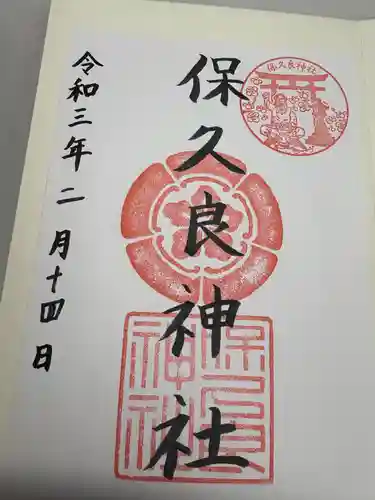 保久良神社
保久良神社
令和三年二月十四日
保久良
神社